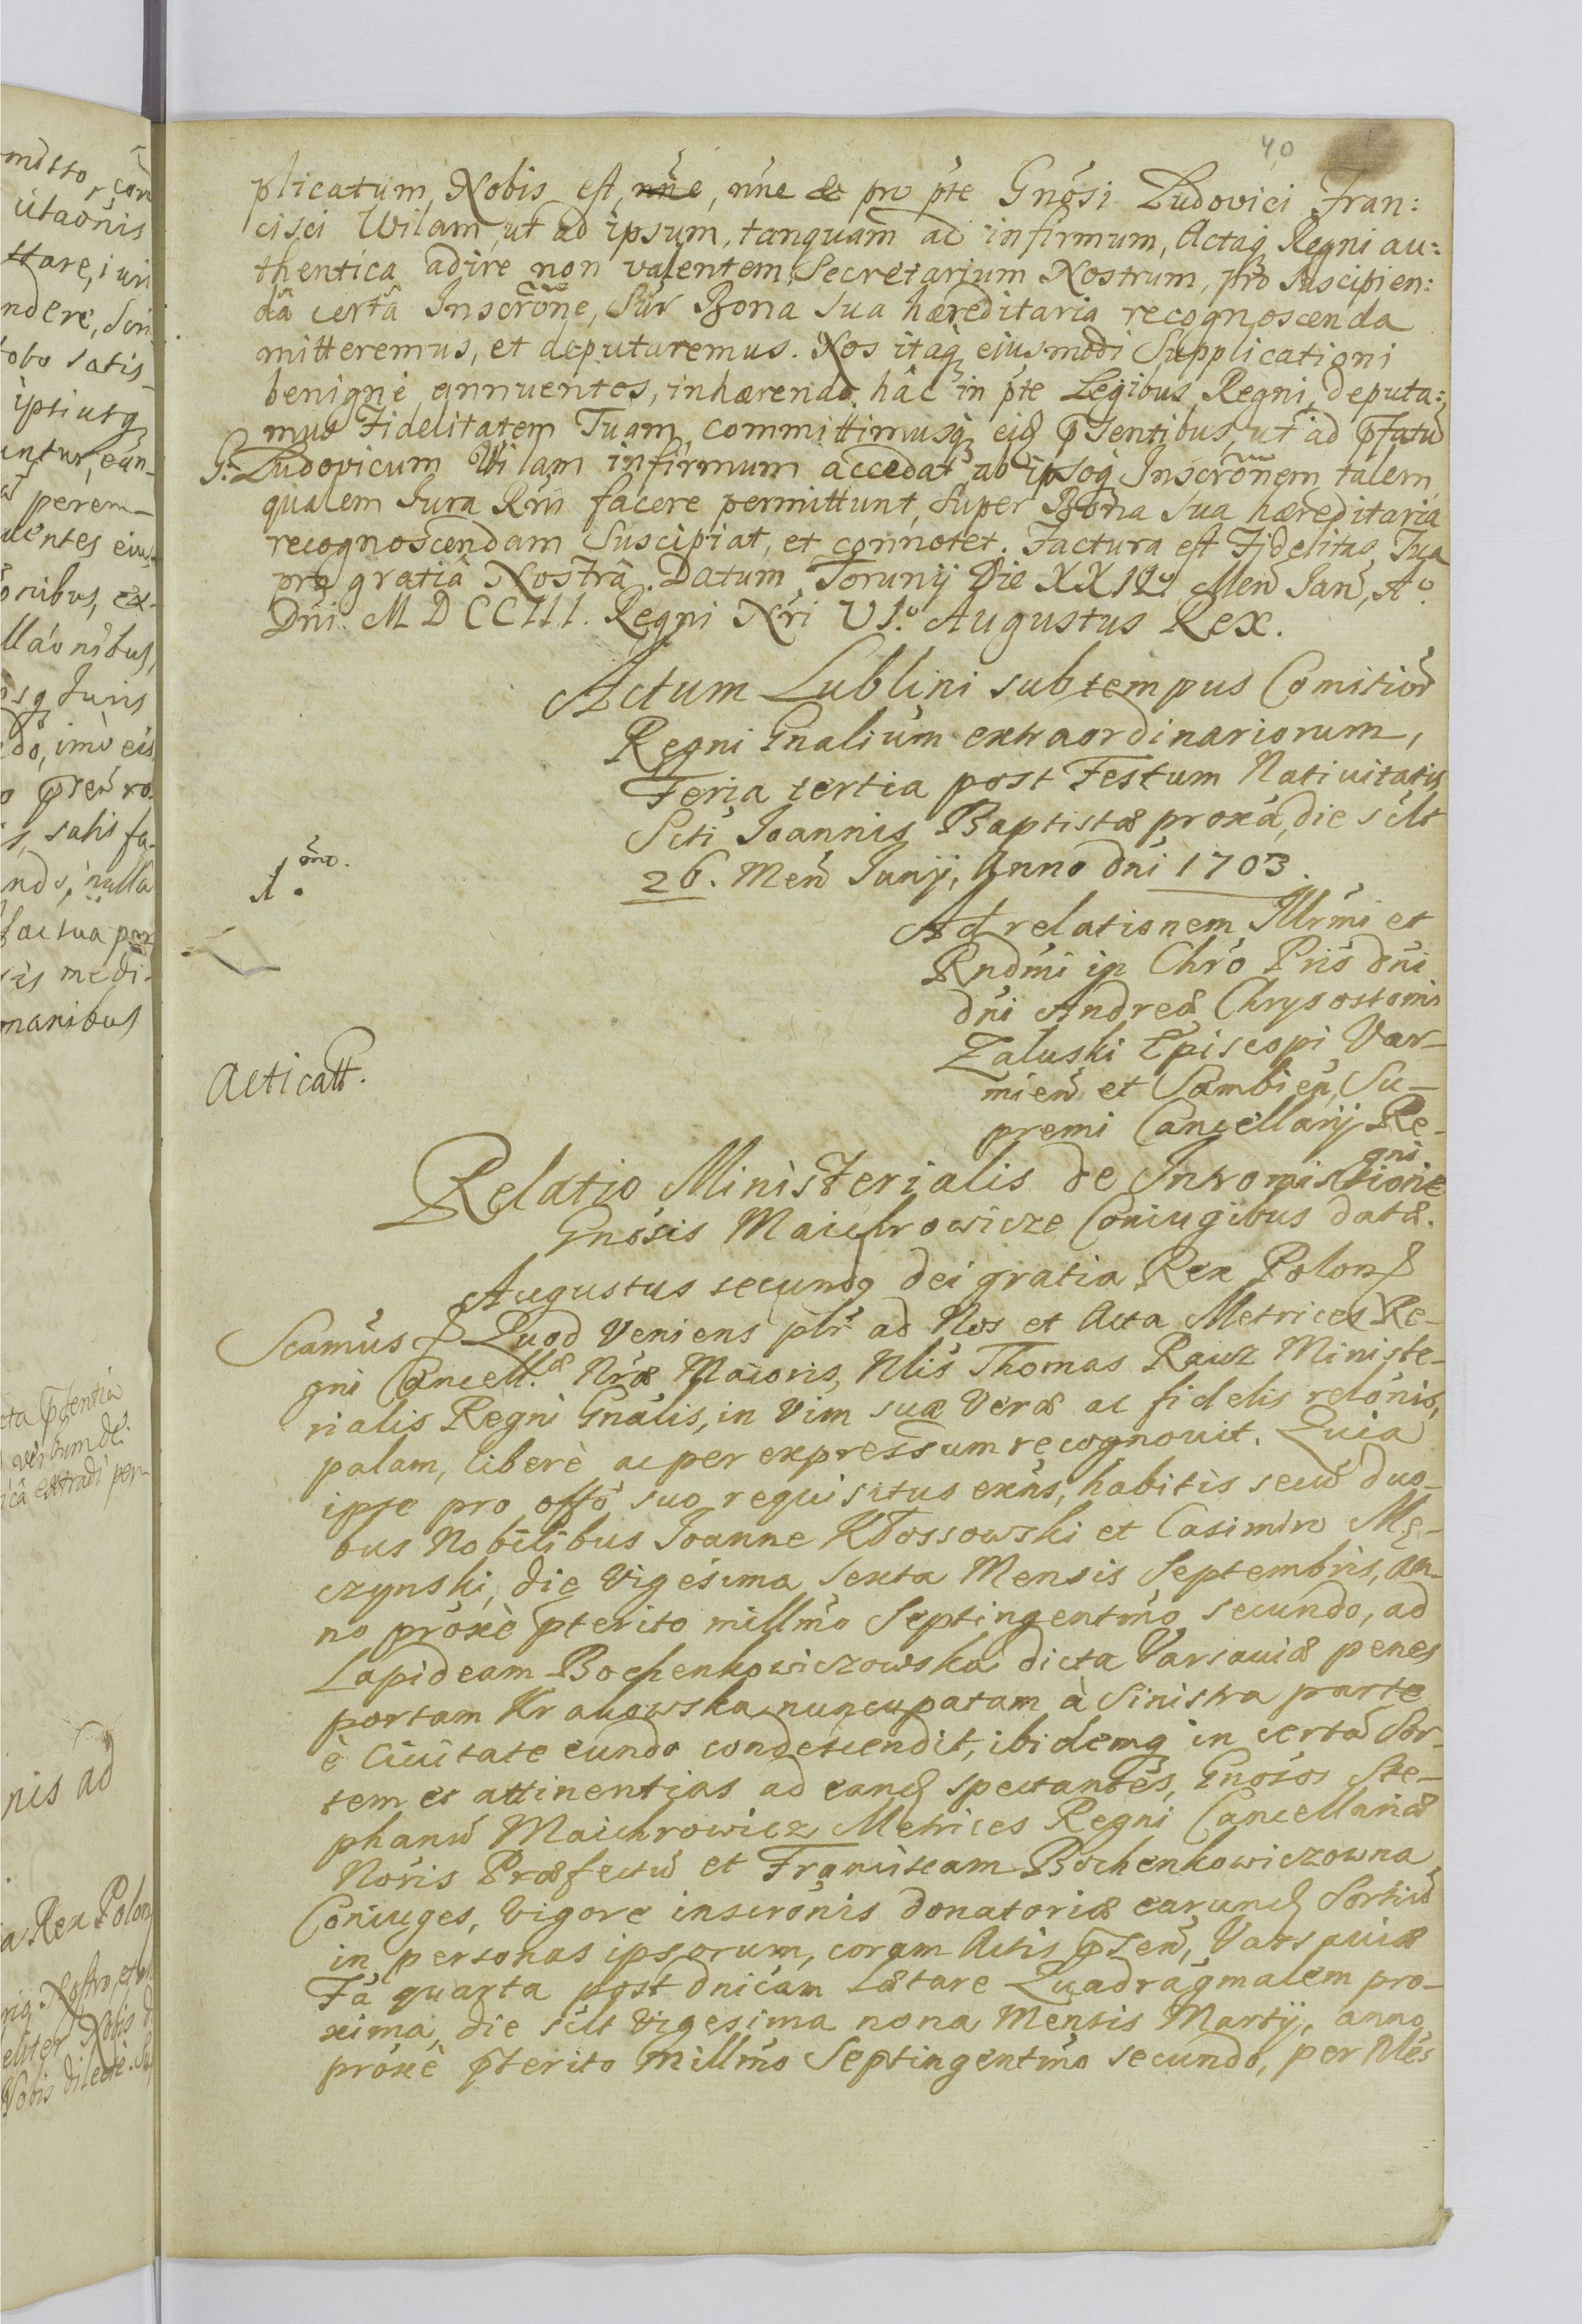 40
plicatum, Nobis est, nn̄e, nn̄e & pro pte Gnosi Ludovici Fran:
cisci Wilam, ut ad ipsum, tanquam ad infirmum, Actaq Regni au:
thentica adire non valentem, Secretarium Nostrum, pro suscipien:
dâ certâ Inscrõne, Sũr Bona sua hæreditaria recognoscenda
mitteremus, et deputaremus. Nos itaq eiusmodi Supplicationi
benignè annuentes, inhærendo hâc in pte Legibus Regni, deputa:
mus Fidelitatem Tuam, committimusq eid p̄sentibus, ut ad p̄fatũ
G. Ludovicum Wilam infirmum accedat ab ipsoq Inscrõnem talem
qualem Iura Rni facere permittunt, super Bona sua hæreditaria
recognoscendam suscipiat, et connotet. Factura est Fidelitas Tua
pro gratiâ Nostrâ. Datum Torunij Die XXIV Men Ian, Aº.
Dni. MDCCIII. Regni Nri VIº. Augustus Rex.
Actum Lublini sub tempus Comitior
Regni Gnalium extraordinariorum,
Feria tertia post Festum Nativitatis
Scti Joannis Baptistæ proxa, die sclt
26. Men Junij, Anno dni 1703.
1. ma.
Ad relationem Illrmi et
Rndmi in Chro Pris dni
dni Andreæ Chrysostomi
Zaluski Episcopi Var-
mien et Sambien, Su-
premi Cancellarij Re-
gni
Acticatt.
Relatio Ministerialis de Intromissione
Gnosis Maichrowicze Coniugibus data.
Augustus secundq dei gratia Rex Polon
Scamus Quod veniens plr ad Nos et Acta Metrices Re-
gni Cancell.æ Nræ Maioris, Nlis Thomas Rawz Ministe-
rialis Regni Gnalis, in vim suæ veræ ac fidelis relonis,
palam, liberè ac per expressum recognovit. Quia
ipse pro offo suo requisitus exns, habitis secũ duo-
bus Nobilibus Joanne Kłossowski et Casimiro Mę-
czynski, die Vigesima sexta Mensis Septembris, an-
no proxè pterito millmo Septingentmo secundo, ad
Lapideam Bochenkowiczowska dicta Varsaviæ penes
portam Krakowska nuncupatam à sinistra parte
è Civitate eundo condescendit, ibidemq in certa Sor-
tem et attinentias ad eand spectantes, Gnosos Ste-
phanũ Maichrowicz Metrices Regni Cancellariæ
Noris Præfectũ et Franciscam Bochenkowiczowna
Coniuges, vigore inscronis donatoriæ earund Sortiũ
in personas ipsorum, coram Actis p̄sen, Varsaviæ
Fa quarta post dnicam Lætare Quadragmalem pro-
xima, die sclt Vigesima nona Mensis Martij, anno
proxè p̄terito Millmo Septingentmo secundo, per Nles